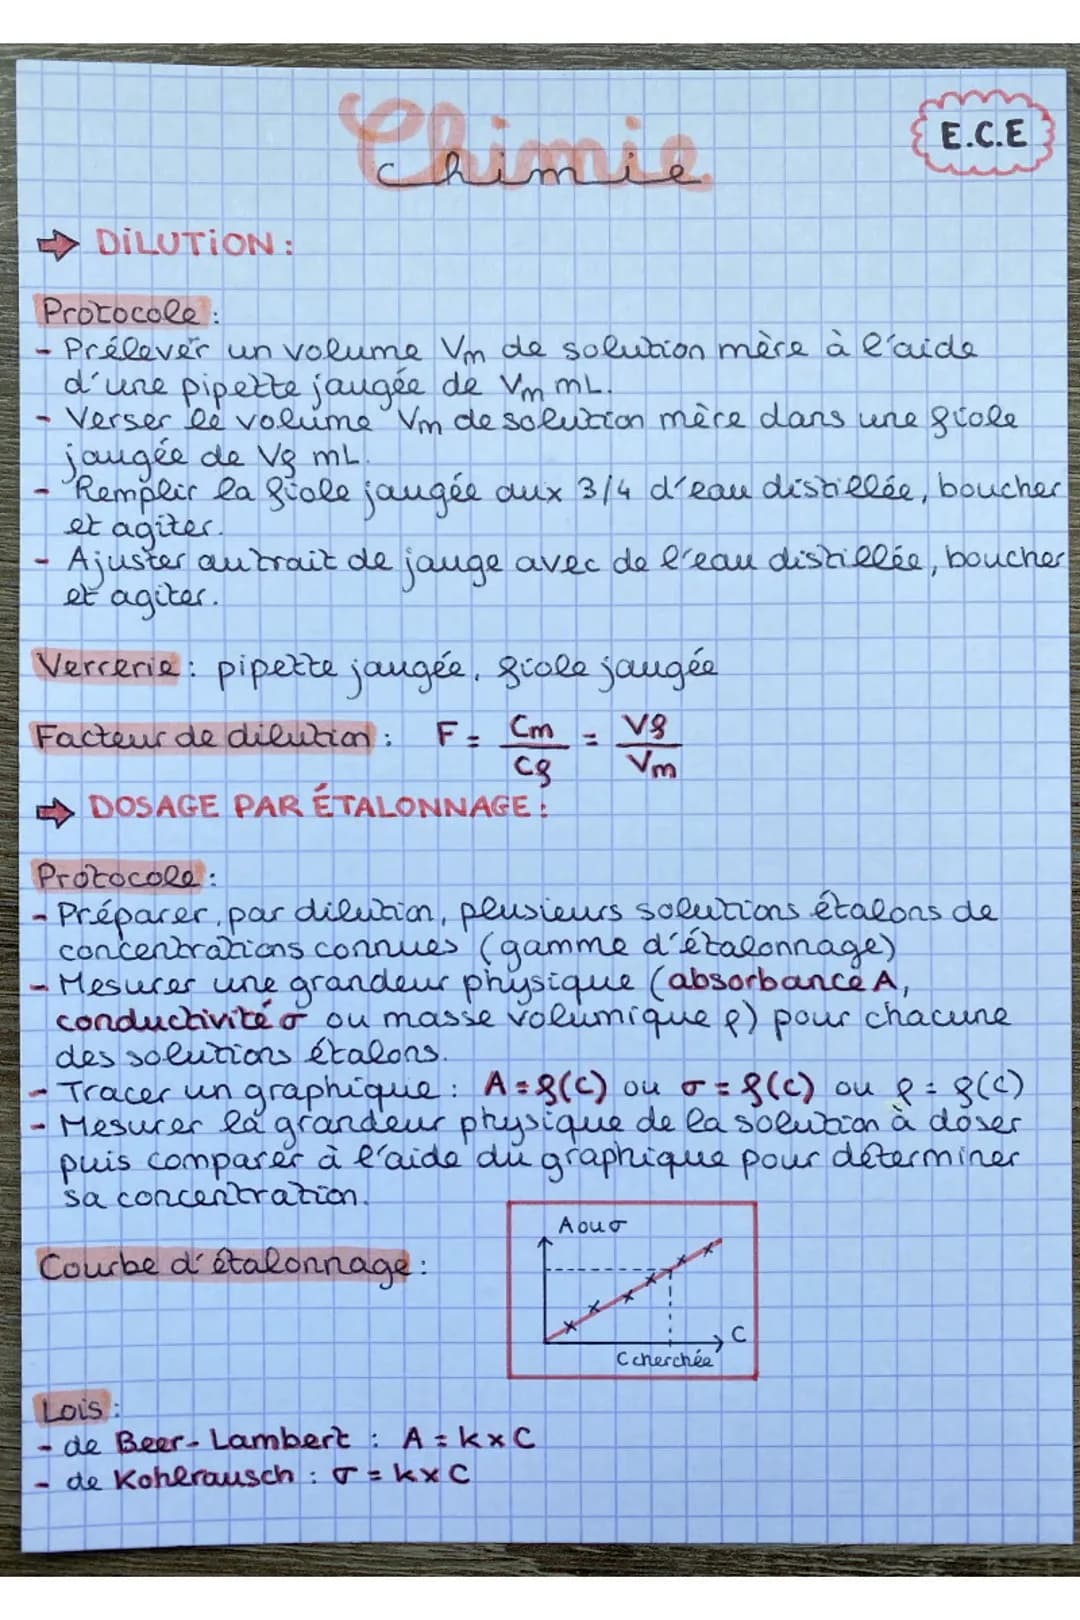 Chimie
E.C.E
DILUTION :
Protocole :
- Prélever un volume Vm de solution mère à l'aide
d'une pipette jaugée de Vm mL.
- Verser le volume Vm de solution mère dans une fiole
jaugée de Vf mL.
- Remplir la fiole jaugée aux 3/4 d'eau distillée, boucher
et agiter.
- Ajuster au trait de jauge avec de l'eau distillée, boucher
et agiter.
Verrerie : pipette jaugée, fiole jaugée
Facteur de dilution : F = Cm/Cf = Vf/Vm
DOSAGE PAR ÉTALONNAGE :
Protocole :
- Préparer, par dilution, plusieurs solutions étalons de
concentrations connues (gamme d'étalonnage)
- Mesurer une grandeur physique (absorbance A,
conductivité σ ou masse volumique ρ) pour chacune
des solutions étalons.
- Tracer un graphique : A = f(C) ou σ = f(C) ou ρ = f(C)
- Mesurer la grandeur physique de la solution à doser
puis comparer à l'aide du graphique pour déterminer
sa concentration.
Courbe d'étalonnage :
A ou σ
C
C cherchée
Lois :
- de Beer-Lambert : A = k x C
- de Kohlrausch : σ = k x C